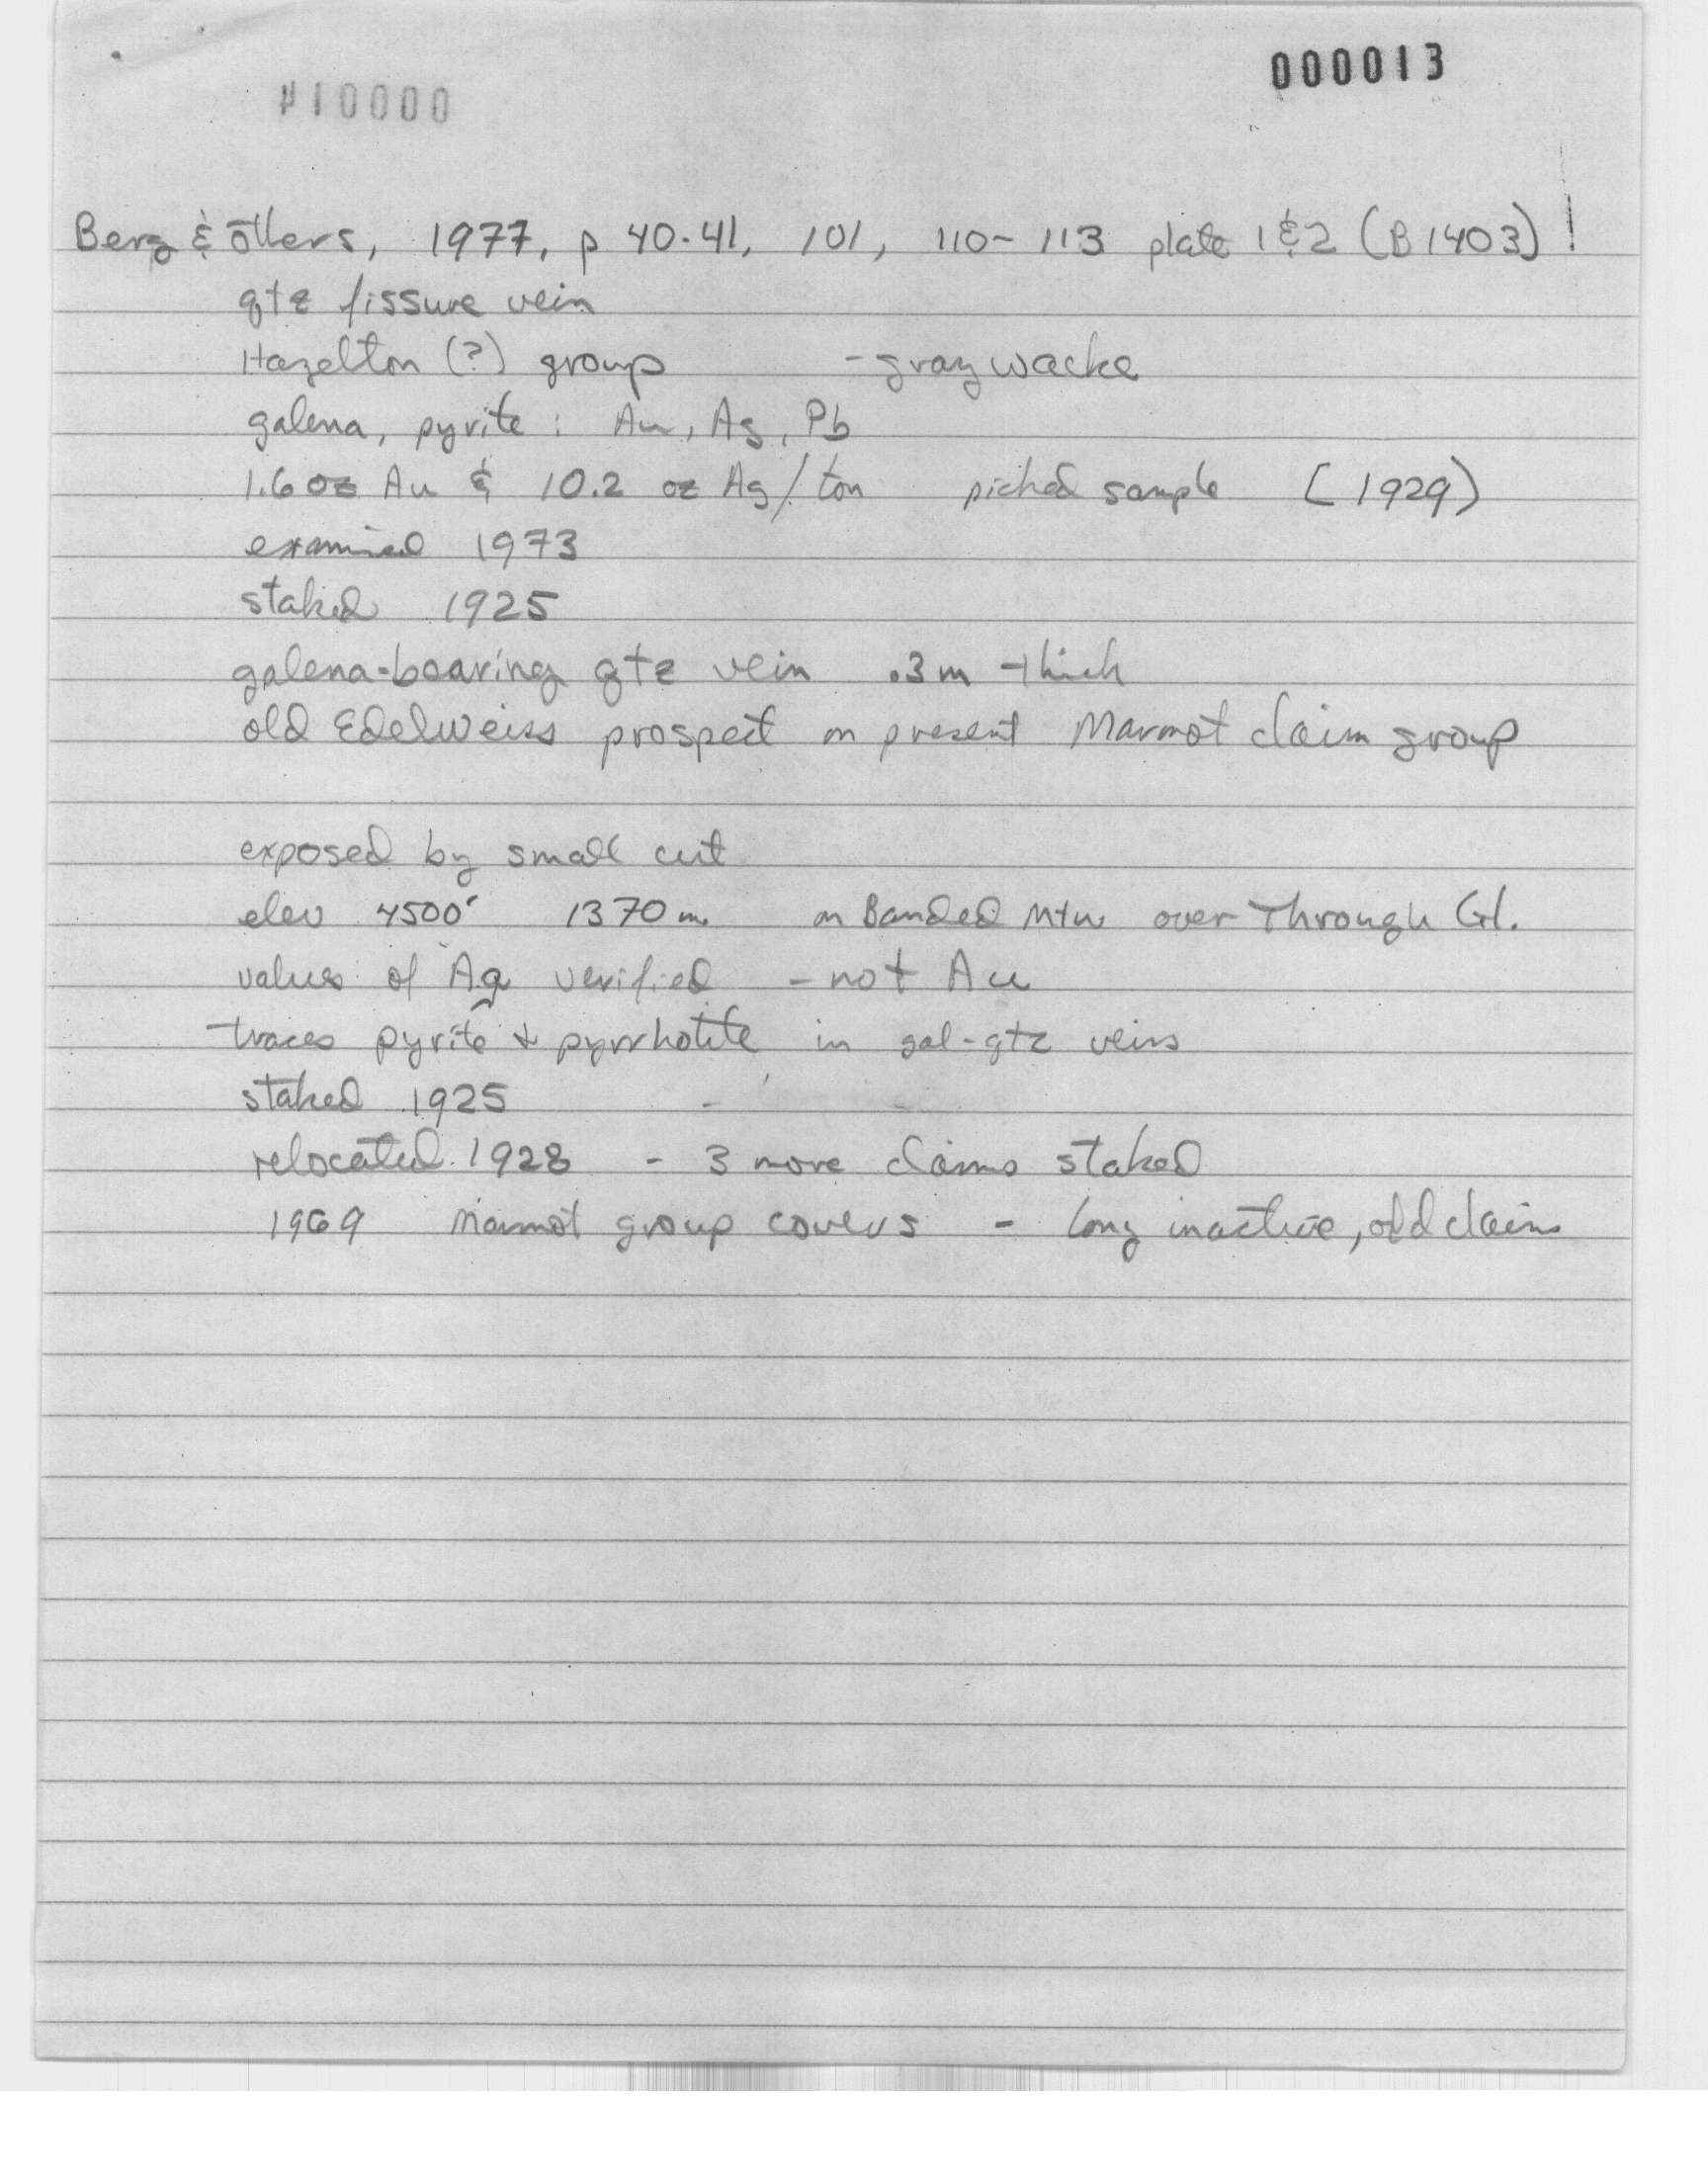 000013
Berg & others, 1977, p 40-41, 101, 110-113 plate 1&2 (B1403)!
qtz fissure vein
Hazelton (?) group - graywacke
galena, pyrite : Au, Ag, Pb
1.6 oz Au & 10.2 oz Ag/ton picked sample (1929)
examined 1973
staked 1925
galena-bearing qtz vein .3 m thick
old Edelweiss prospect on present Marmot claim group
exposed by small cut
elev 4500' 1370 m on Banded Mtn over Through Gl.
values of Ag verified - not Au
traces pyrite & pyrrhotite in gal-qtz veins
staked 1925
relocated 1928 - 3 more claims staked
1969 Marmot group covers - long inactive, old claims